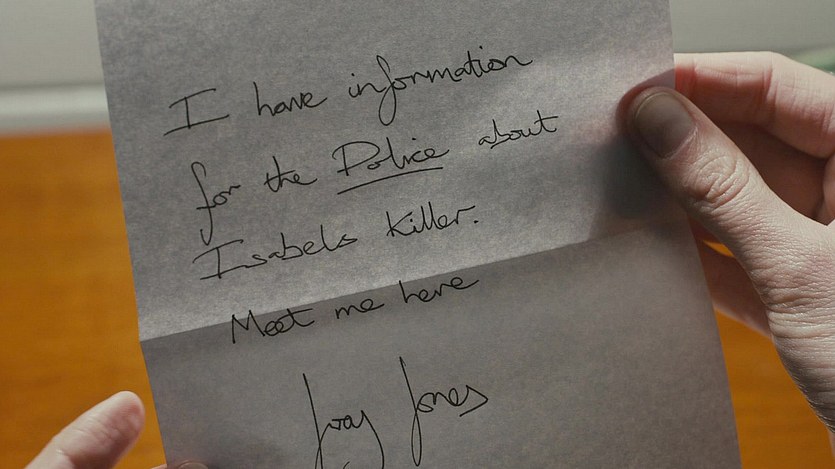 I have information
for the Police about
Isabels killer.
Meet me here
Jones